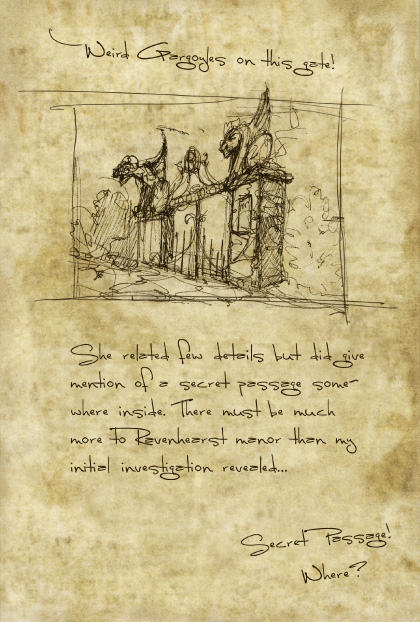 Weird Gargoyles on this gate!
She related few details but did give
mention of a secret passage some-
where inside. There must be much
more to Ravenhearst manor than my
initial investigation revealed...
Secret Passage!
Where?